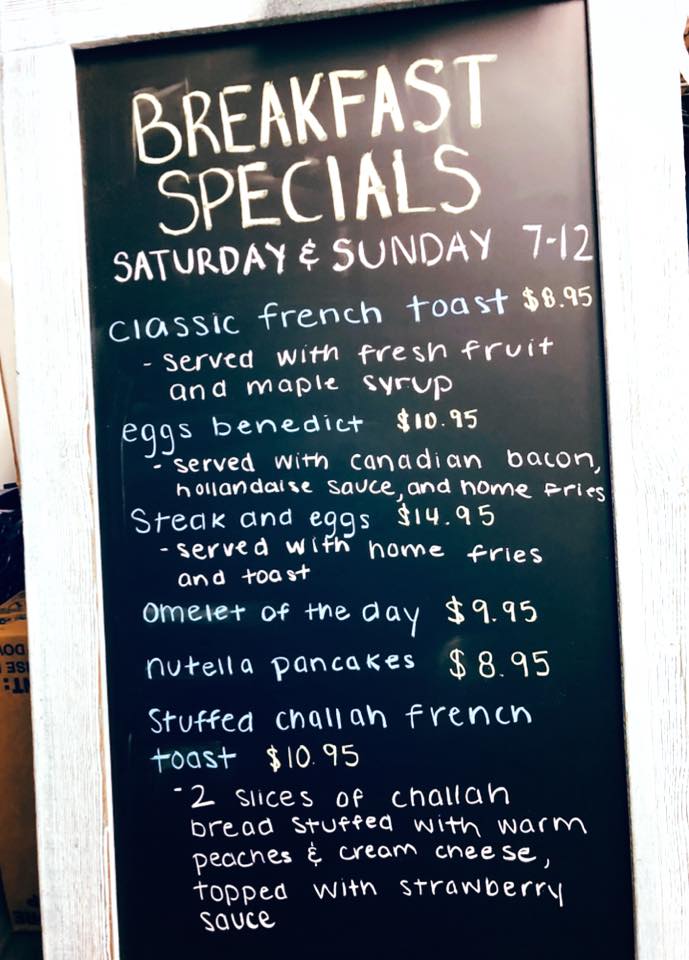 BREAKFAST
SPECIALS
SATURDAY & SUNDAY 7-12
classic french toast $8.95
- served with fresh fruit
and maple syrup
eggs benedict $10.95
- served with canadian bacon,
hollandaise sauce, and home fries
Steak and eggs $14.95
- served with home fries
and toast
omelet of the day $9.95
nutella pancakes $8.95
Stuffed challah french
toast $10.95
- 2 slices of challah
bread stuffed with warm
peaches & cream cheese,
topped with strawberry
sauce